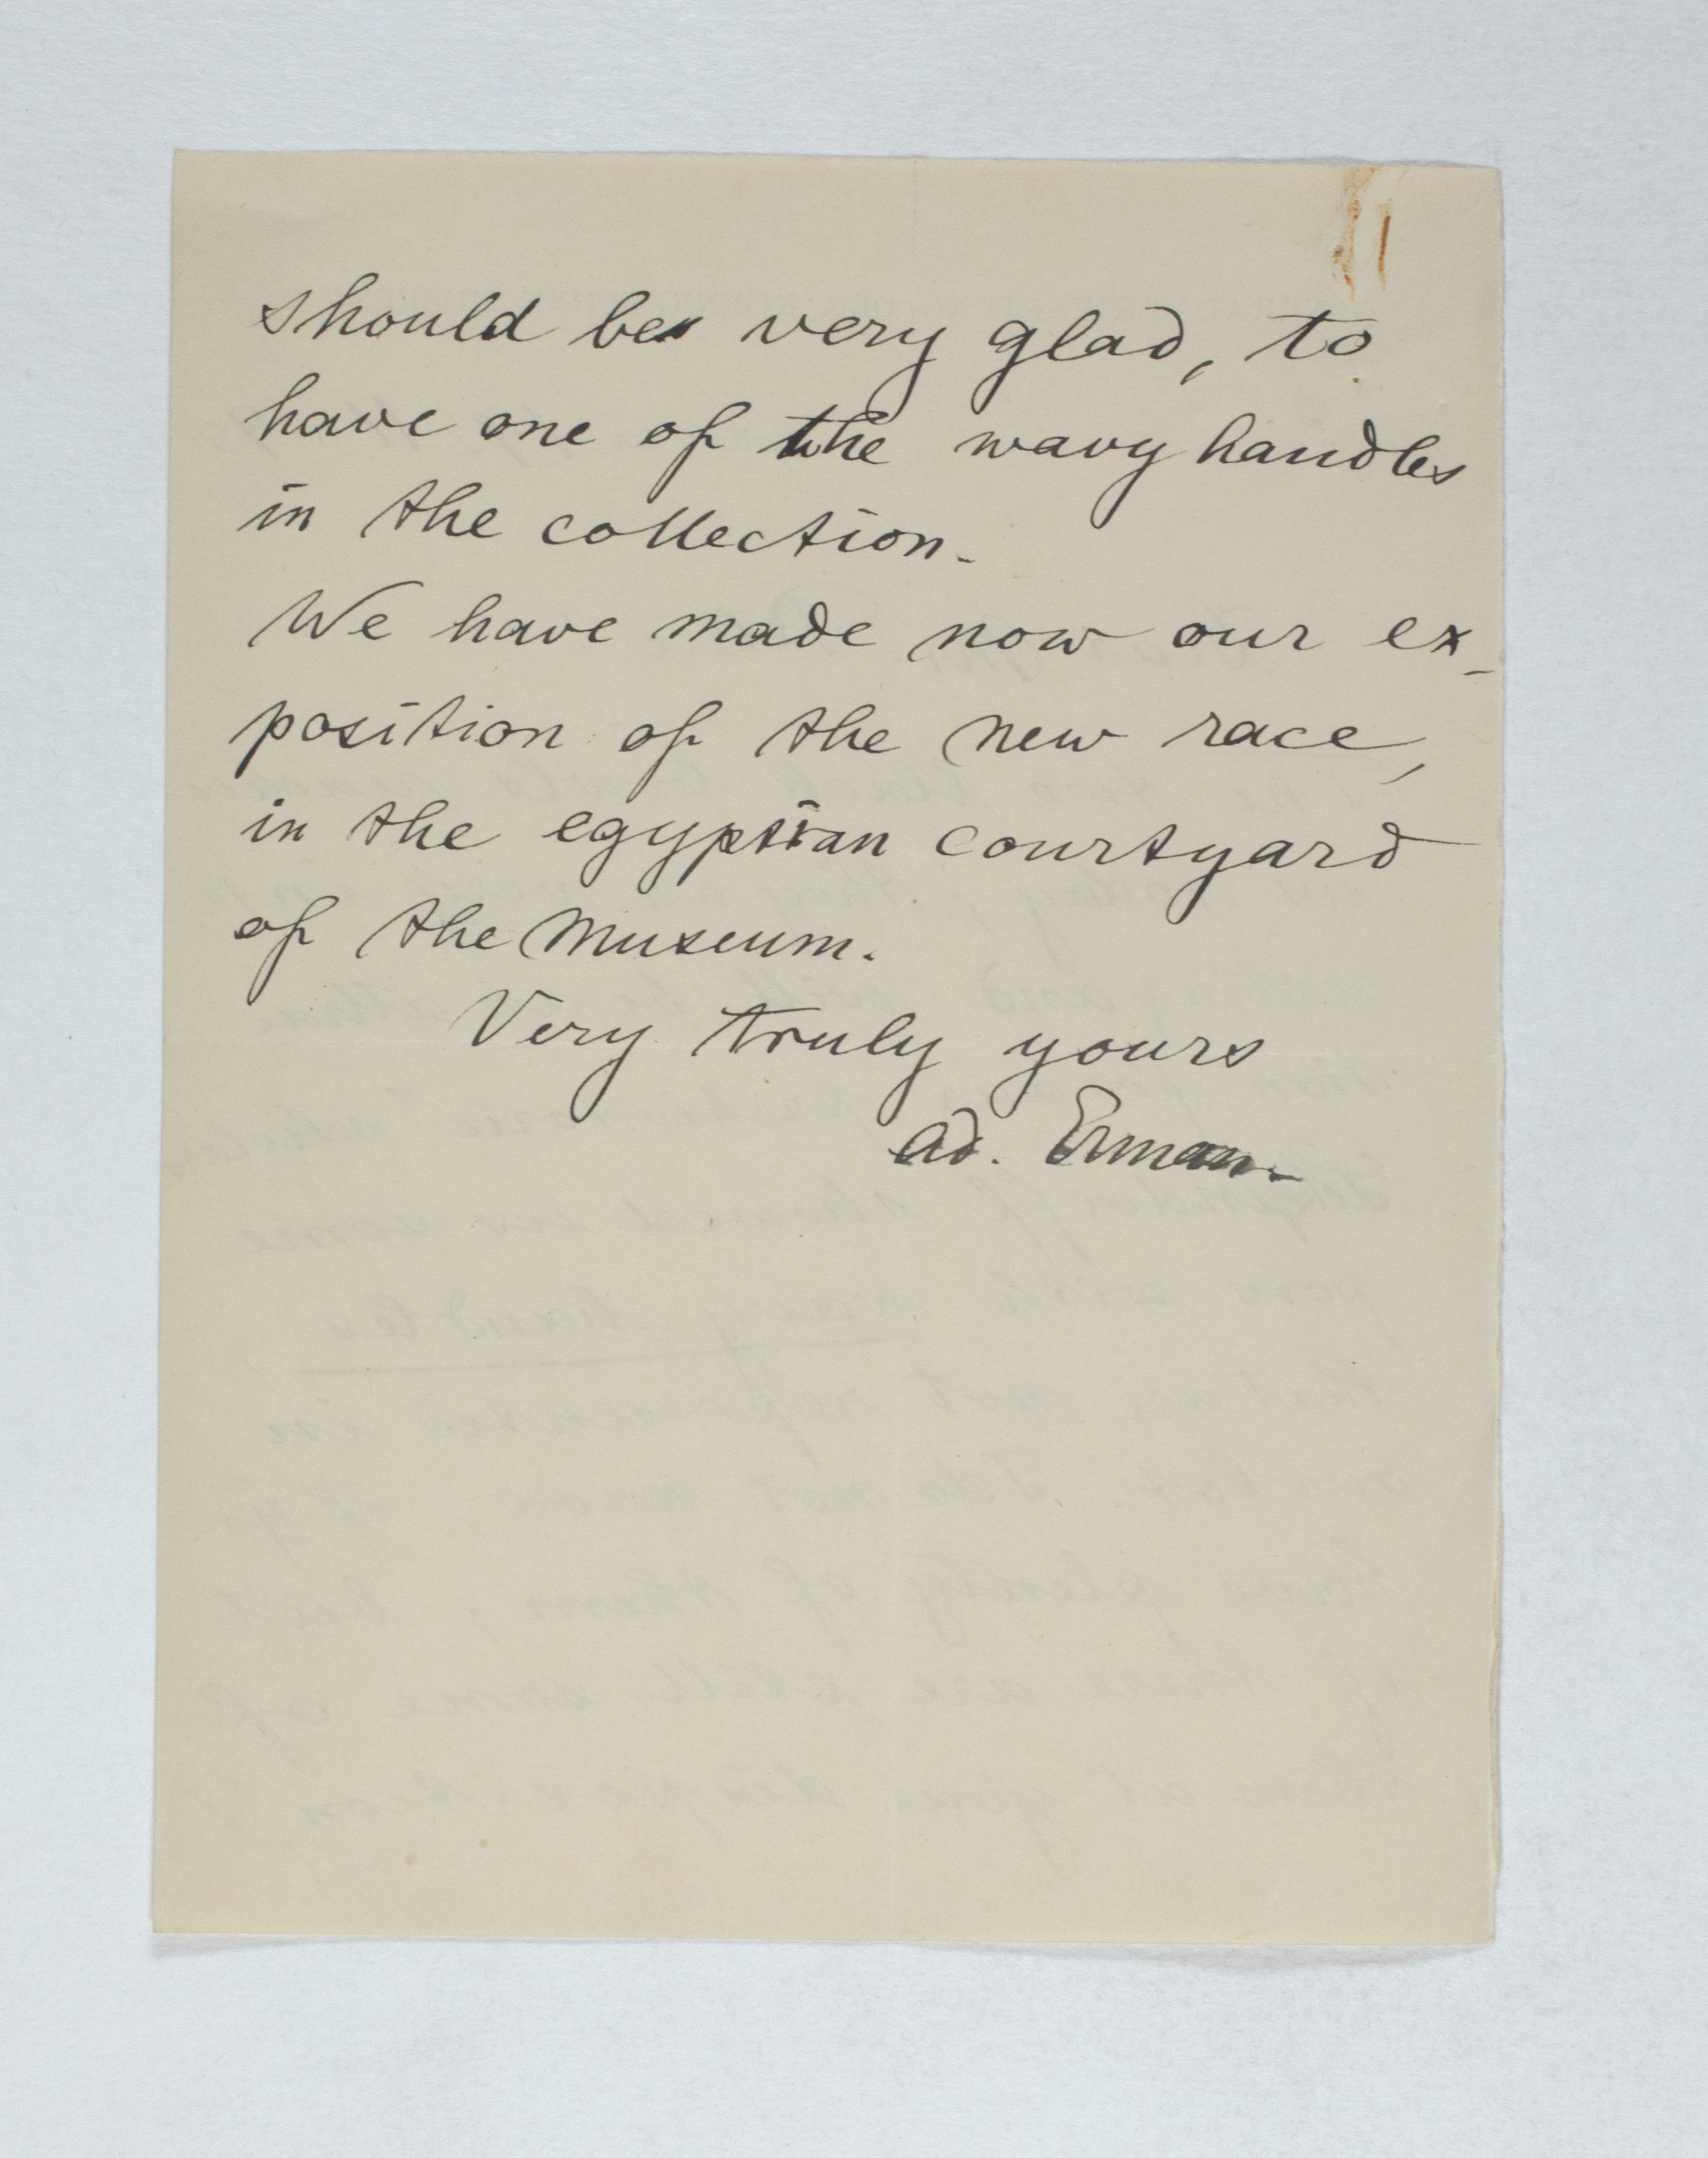 should be very glad, to
have one of the wavy handles
in the collection.
We have made now our ex-
position of the new race,
in the egyptian courtyard
of the Museum.
Very truly yours
Ad. Erman.